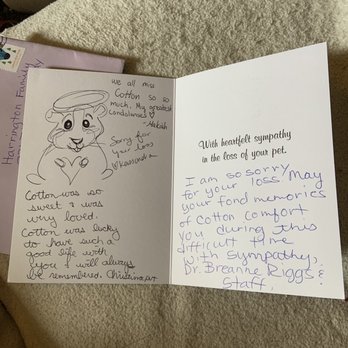 Harrington Family
we all miss
Cotton so so
much. My greatest
condolences ♡
Sorry for
your loss
♡ Kassandra
Cotton was so
sweet & was
very loved.
Cotton was lucky
to have such a
good life with
you & will always
be remembered. Christina, VT
With heartfelt sympathy
in the loss of your pet.
I am so sorry
for your loss. May
your fond memories
of Cotton comfort
you during this
difficult time
With sympathy,
Dr. Breanne Riggs &
Staff.